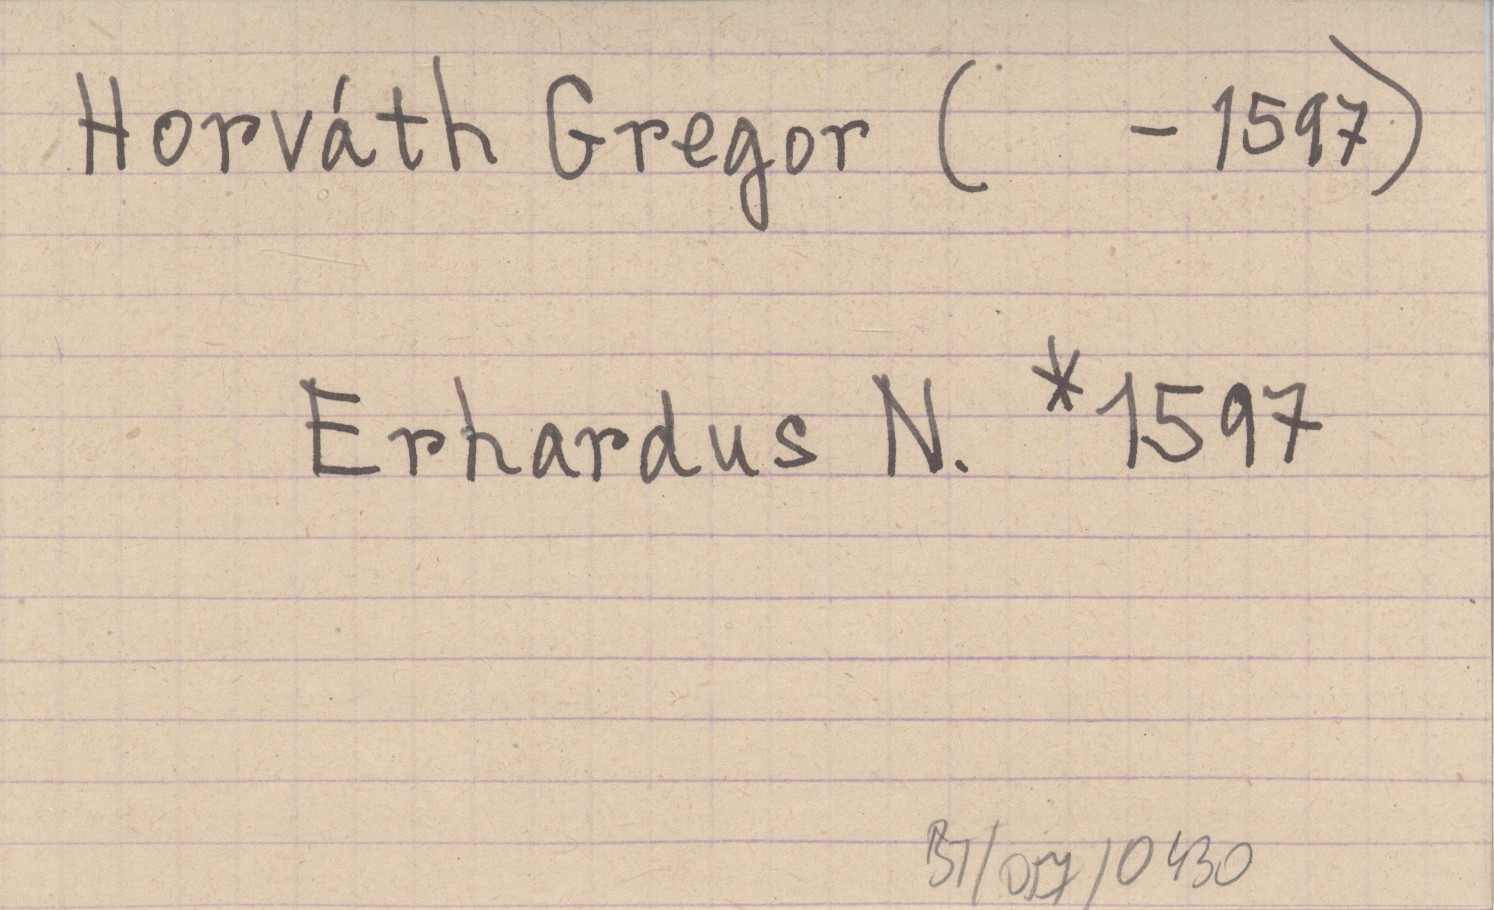 Horváth Gregor ( - 1597)
Erhardus N. *1597
BT/057/0430